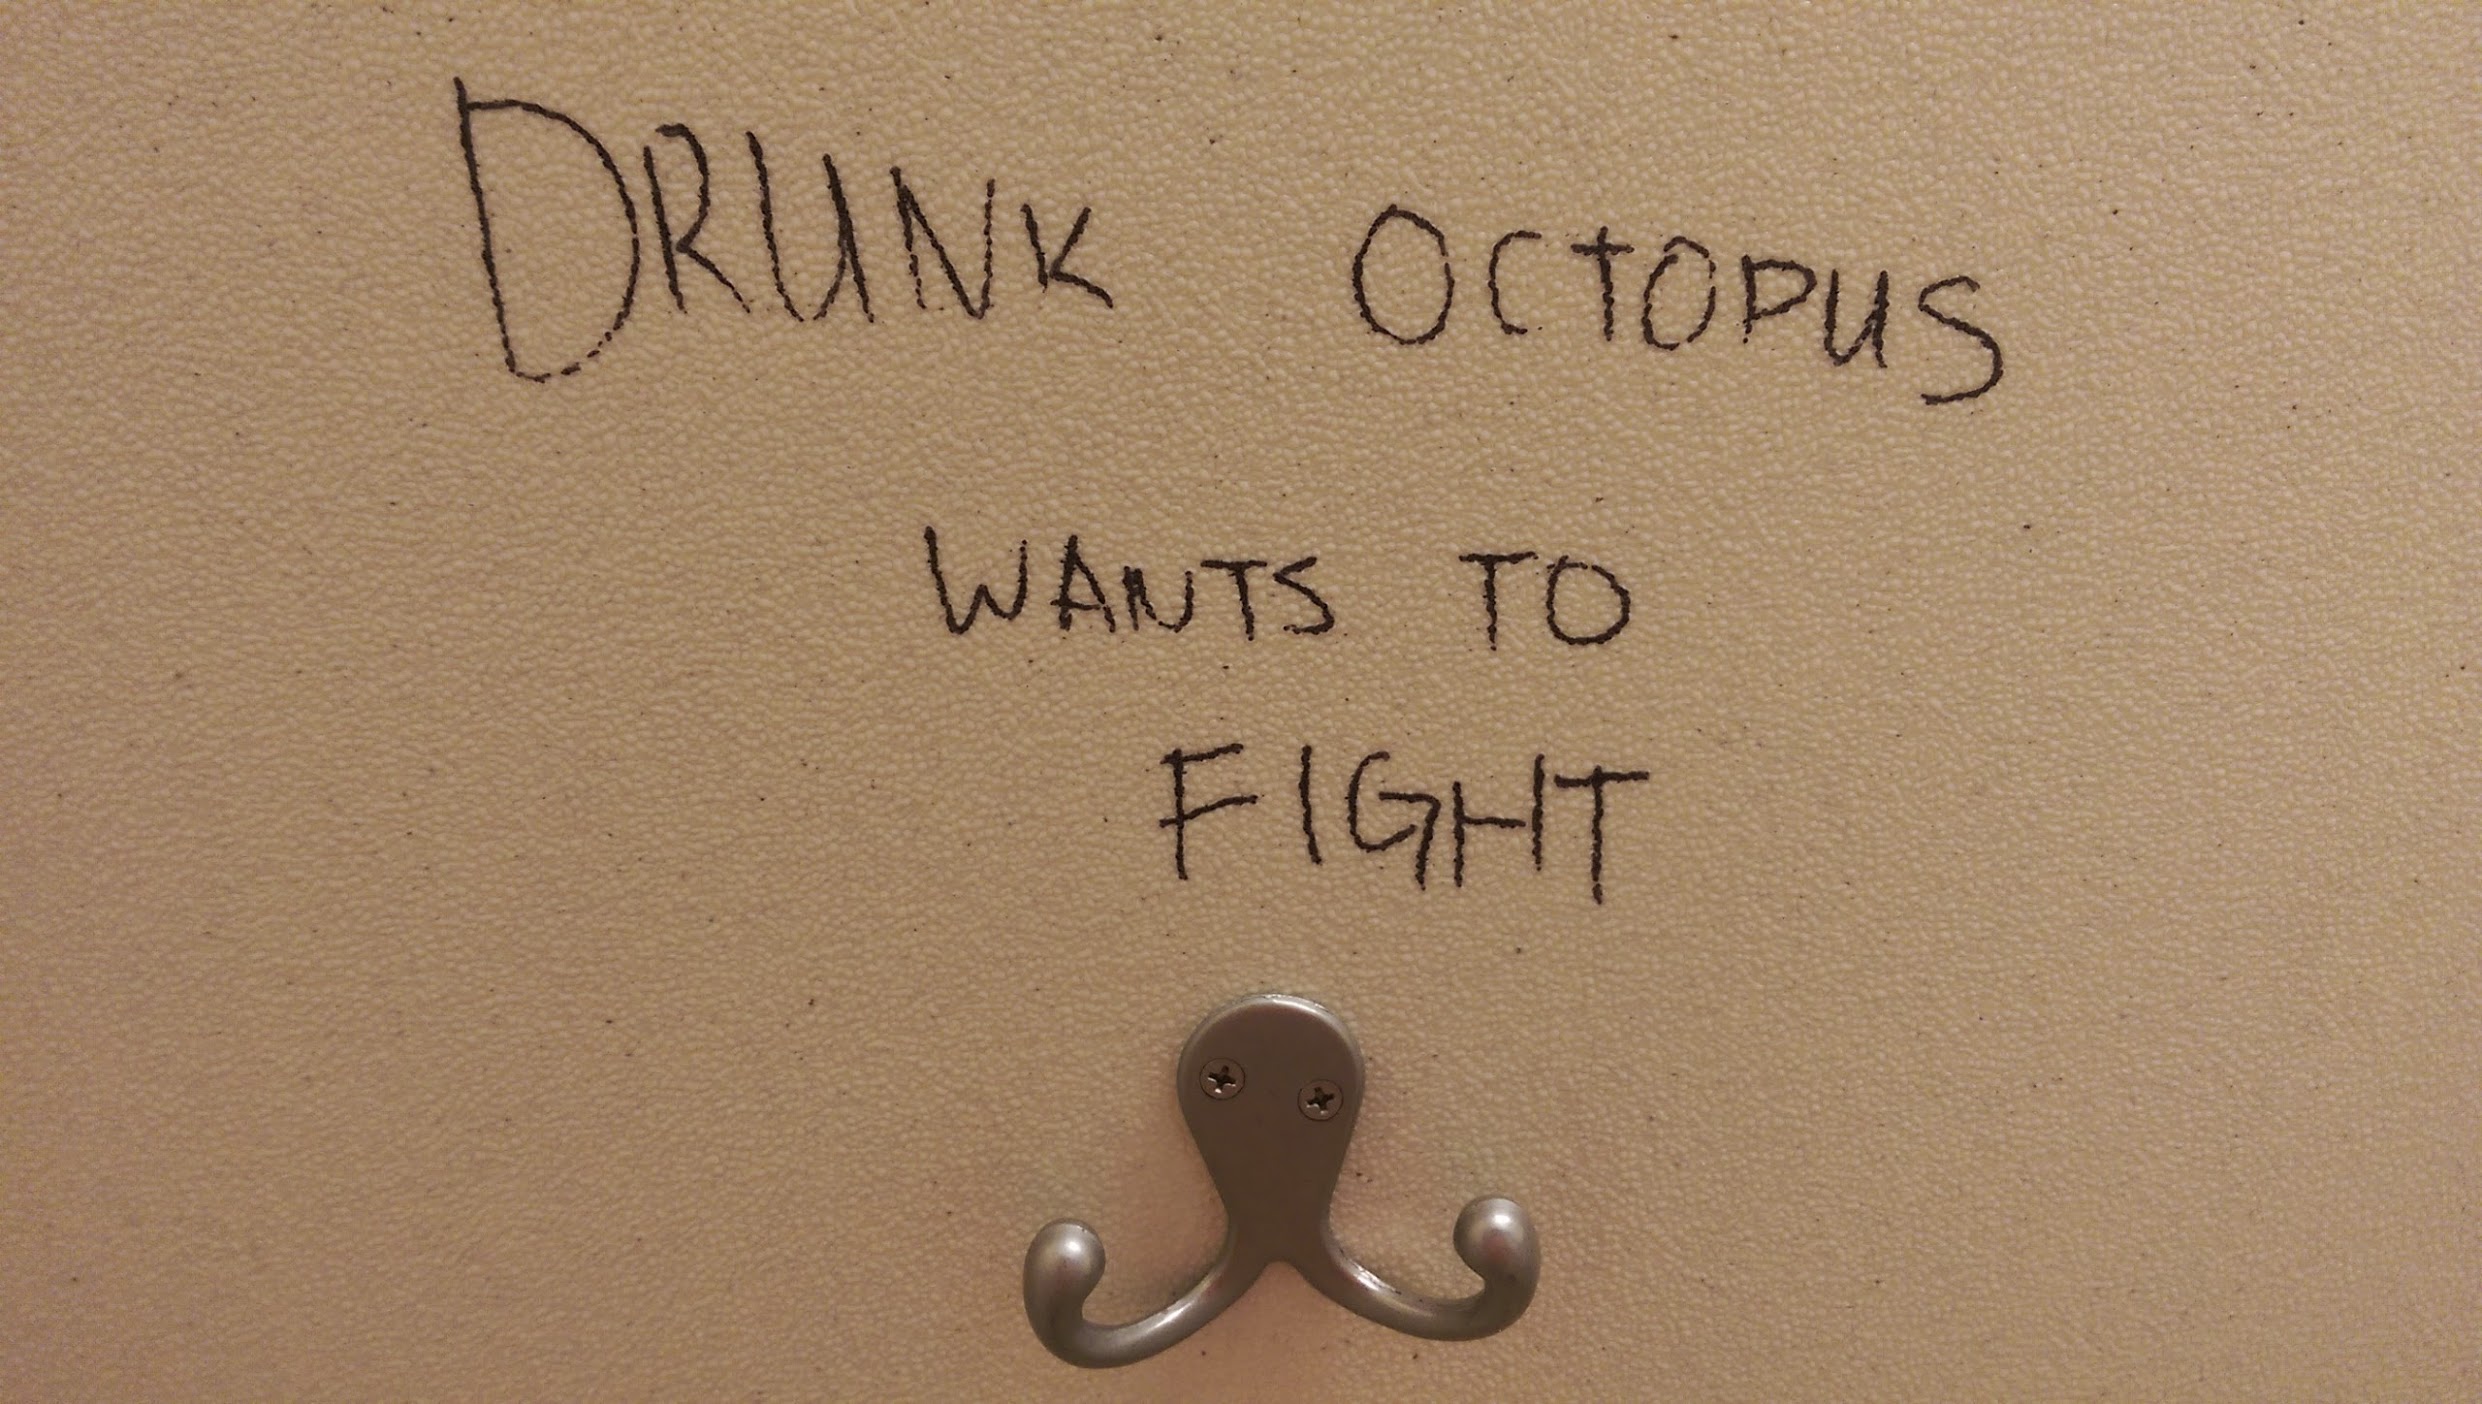 DRUNK OCTOPUS
WANTS TO
FIGHT